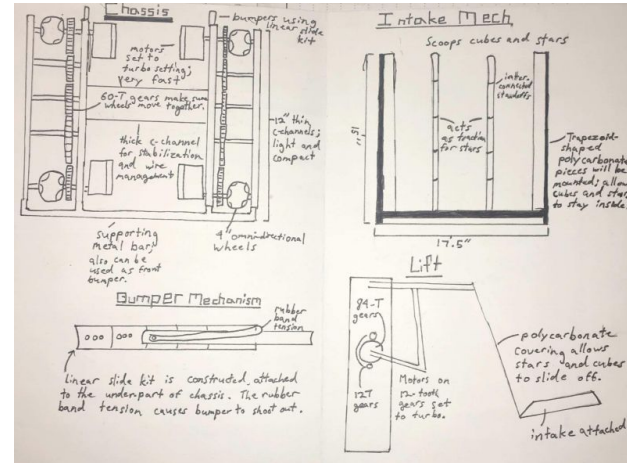 Chassis
bumpers using
linear slide
kit
motors
set to
turbo setting;
very fast
60-T gears make sure
wheels move together.
12" thin
c-channels;
light and
compact
thick c-channel
for stabilization
and wire
management
supporting
metal bar;
also can be
used as front
bumper.
4" omnidirectional
wheels
Bumper Mechanism
rubber
band
tension
Linear slide kit is constructed, attached
to the underpart of chassis. The rubber
band tension causes bumper to shoot out.
Intake Mech.
Scoops cubes and stars
inter-
connected
standoffs
acts
as traction
for stars
Trapezoid-
shaped
polycarbonate
pieces will be
mounted; allow
cubes and stars
to stay inside.
17.5"
Lift
84-T
gears
12T
gears
Motors on
12-tooth
gears set
to turbo.
polycarbonate
covering allows
stars and cubes
to slide off.
intake attached